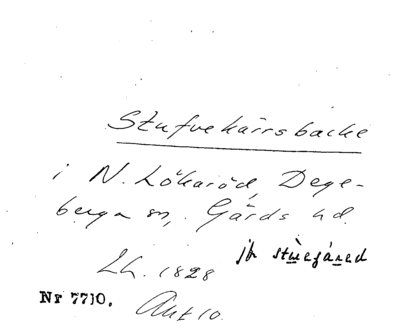 Stufvekärrsbacke
i N. Lökaröd, Dege-
berga sn, Gärds hd.
jfr
Lh. 1828
Nr 7710.
Akt 10.